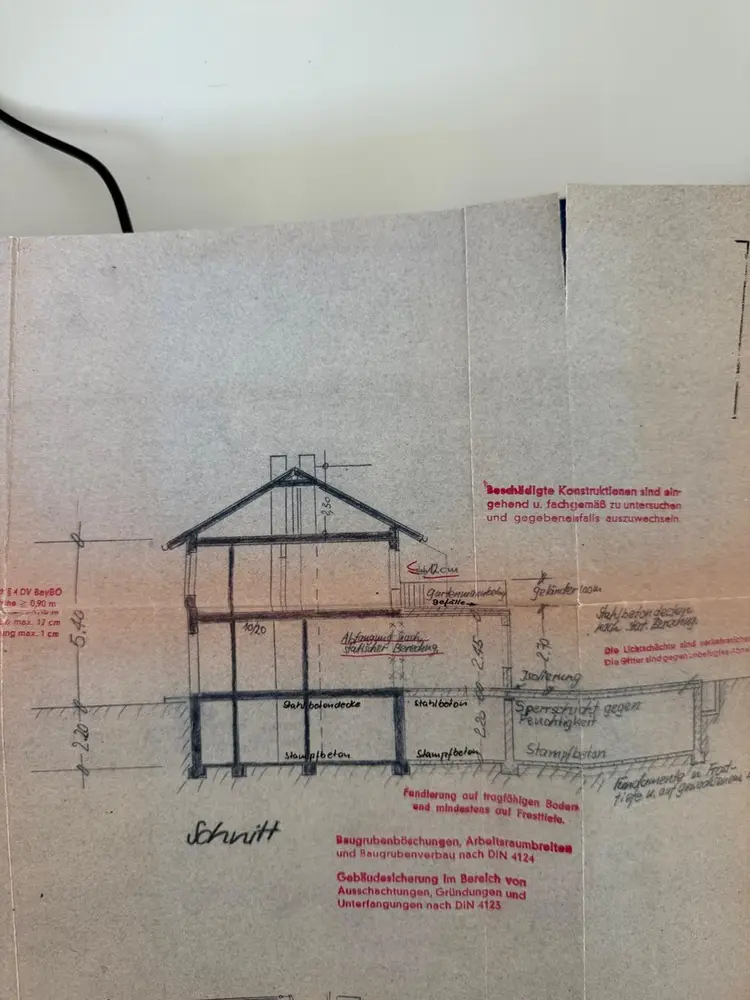 Beschädigte Konstruktionen sind ein-
gehend u. fachgemäß zu untersuchen
und gegebenenfalls auszuwechseln.
2,30
12cm
§ 4 DV BayBO
≥ 0,90 m
max. 12 cm
max. 1 cm
5,40
Gefälle
Geländer 100m
Stahlbetondecken
nach Stat. Berechng.
10/20
Abfangung nach
statischer Berechng.
2,45
2,70
Die Lichtschächte sind verkehrssicher
Die Gitter sind gegen unbefugtes
Isolierung
Stahlbetondecke
Stahlbeton
Sperrschicht gegen
Feuchtigkeit
2,20
2,20
Stampfbeton
Stampfbeton
Stampfbeton
Fundamente in Frost-
tiefe u. auf gewachsenem
Fundierung auf tragfähigen Boden
und mindestens auf Frosttiefe.
Schnitt
Baugrubenböschungen, Arbeitsraumbreiten
und Baugrubenverbau nach DIN 4124
Gebäudesicherung im Bereich von
Ausschachtungen, Gründungen und
Unterfangungen nach DIN 4123